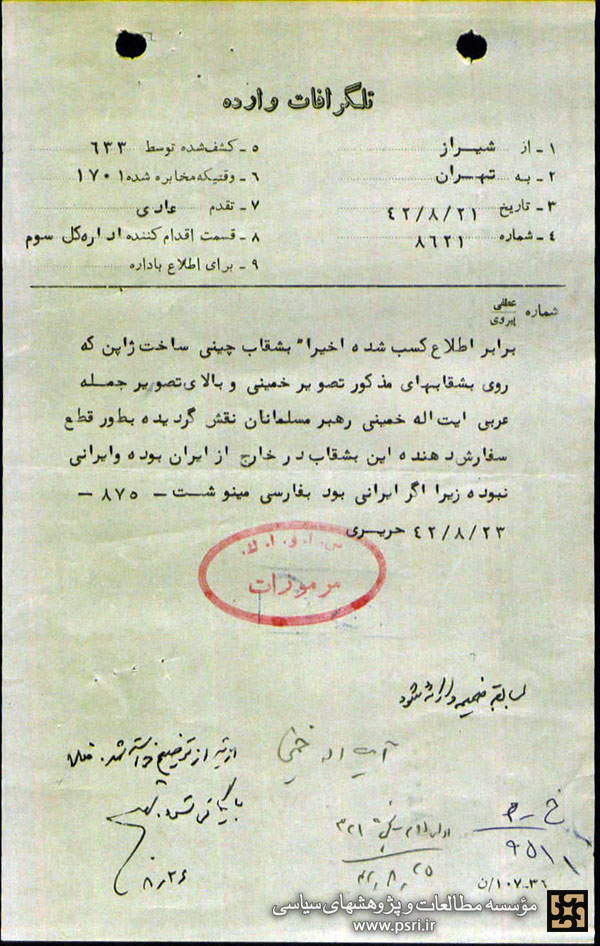 تلگرافات وارده
۱ـ از شیراز
۲ـ به تهران
۳ـ تاریخ ۴۲/۸/۲۱
۴ـ شماره ۸۶۲۱
۵ـ کشف‌شده توسط ۶۳۳
۶ـ وقتیکه مخابره شده ۱۷۰۱
۷ـ تقدم عادی
۸ـ قسمت اقدام کننده اداره کل سوم
۹ـ برای اطلاع باداره
شماره عطفی پیروی
برابر اطلاع کسب شده اخیرا" بشقاب چینی ساخت ژاپن که
روی بشقابهای مذکور تصویر خمینی و بالای تصویر جمله
عربی ایت اله خمینی رهبر مسلمانان نقش گردیده بطور قطع
سفارش دهنده این بشقاب در خارج از ایران بوده وایرانی
نبوده زیرا اگر ایرانی بود بفارسی مینوشت ـ ۸۷۵ ـ
۴۲/۸/۲۳ حریری
س.ا.و.ا.ک.
مرموزات
سابقه ضمیمه و ارائه شود
آیت اله خمینی
۹۵۱۱
۴۲٫۸٫۲۵
۸٫۲۶
۳۶-۱۰۷/ن
مؤسسه مطالعات و پژوهشهای سیاسی
www.psri.ir